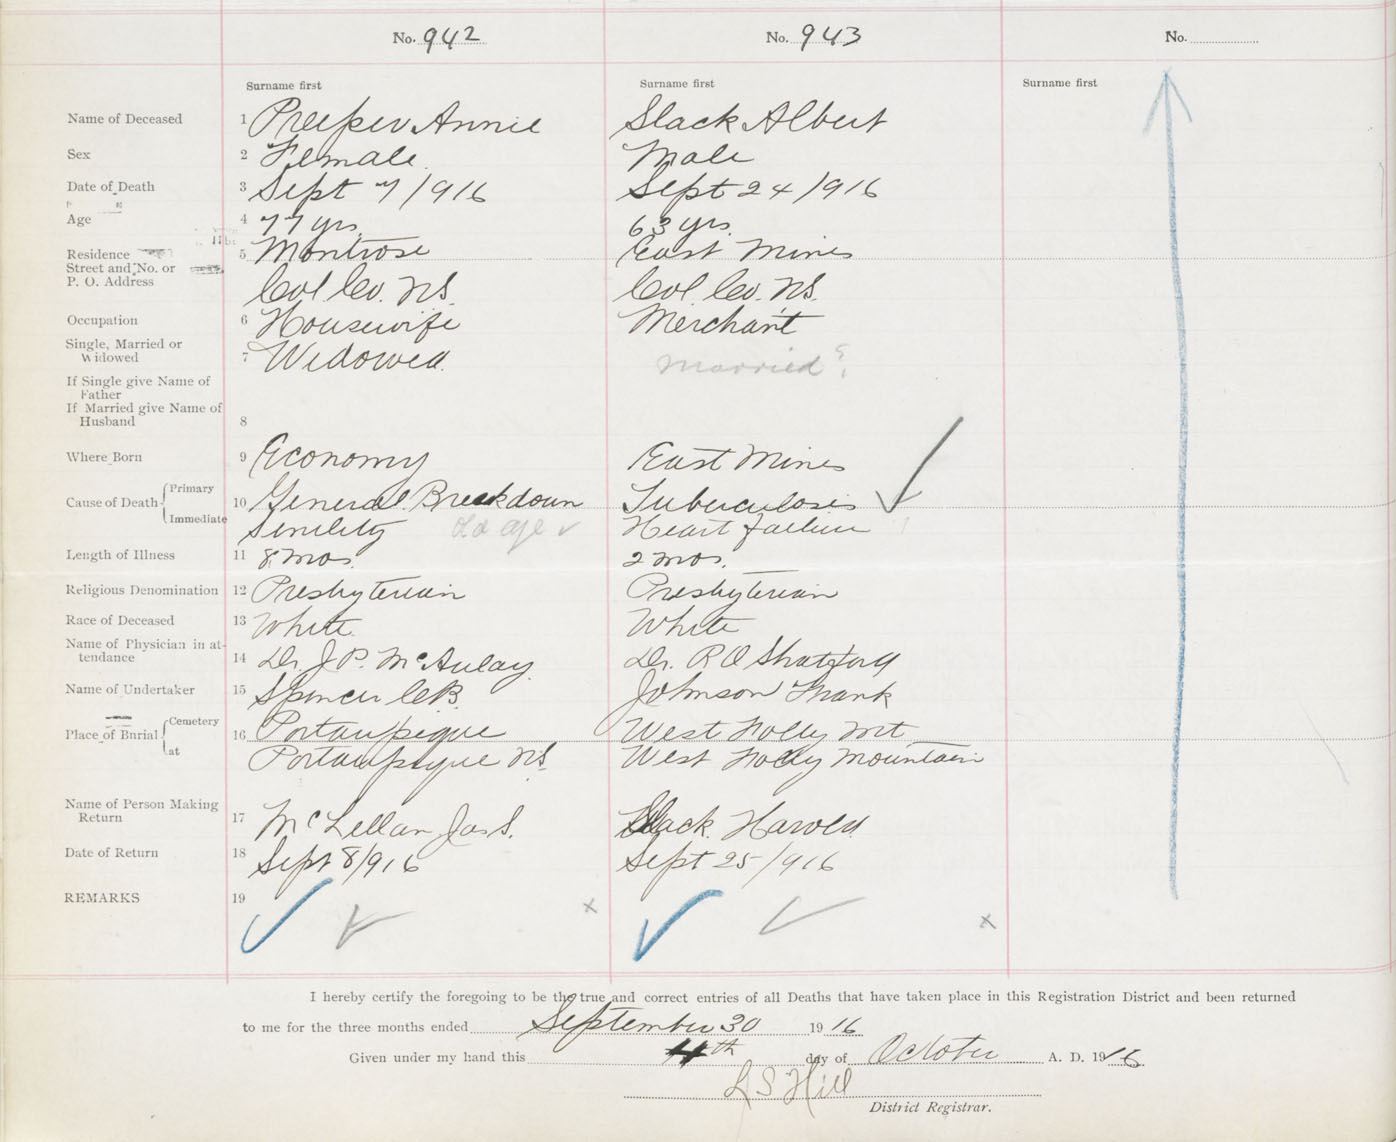 No. 942 No. 943 No.
Surname first Surname first Surname first
Name of Deceased 1 Preeper Annie Slack Albert
Sex 2 Female Male
Date of Death 3 Sept 7/916 Sept 24/916
Age 4 77 yrs. 63 yrs.
Residence 5 Montrose East Mines
Street and No. or
P. O. Address Col. Co. N.S. Col. Co. N.S.
Occupation 6 Housewife Merchant
Single, Married or
Widowed 7 Widowed. Married?
If Single give Name of
Father
If Married give Name of
Husband 8
Where Born 9 Economy East Mines
Cause of Death Primary 10 General Breakdown Tuberculosis
Immediate Senility old age Heart failure
Length of Illness 11 8 mos. 2 mos.
Religious Denomination 12 Presbyterian Presbyterian
Race of Deceased 13 White White
Name of Physician in at-
tendance 14 Dr. J P. McAulay. Dr. R O Shatford
Name of Undertaker 15 Spencer C.B. Johnson Frank
Place of Burial Cemetery 16 Portaupique West Folly Mt
at Portaupique N.S. West Folly Mountain
Name of Person Making
Return 17 McLellan Jas S. Slack. Harold
Date of Return 18 Sept 8/916 Sept 25/916
REMARKS 19
x x
I hereby certify the foregoing to be the true and correct entries of all Deaths that have taken place in this Registration District and been returned
to me for the three months ended September 30 1916
Given under my hand this 4th day of October A. D. 1916
L S Hill
District Registrar.